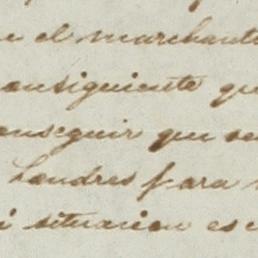 e el marchante
onsiguiente qu
onseguir que se
Londres para
i situacion es